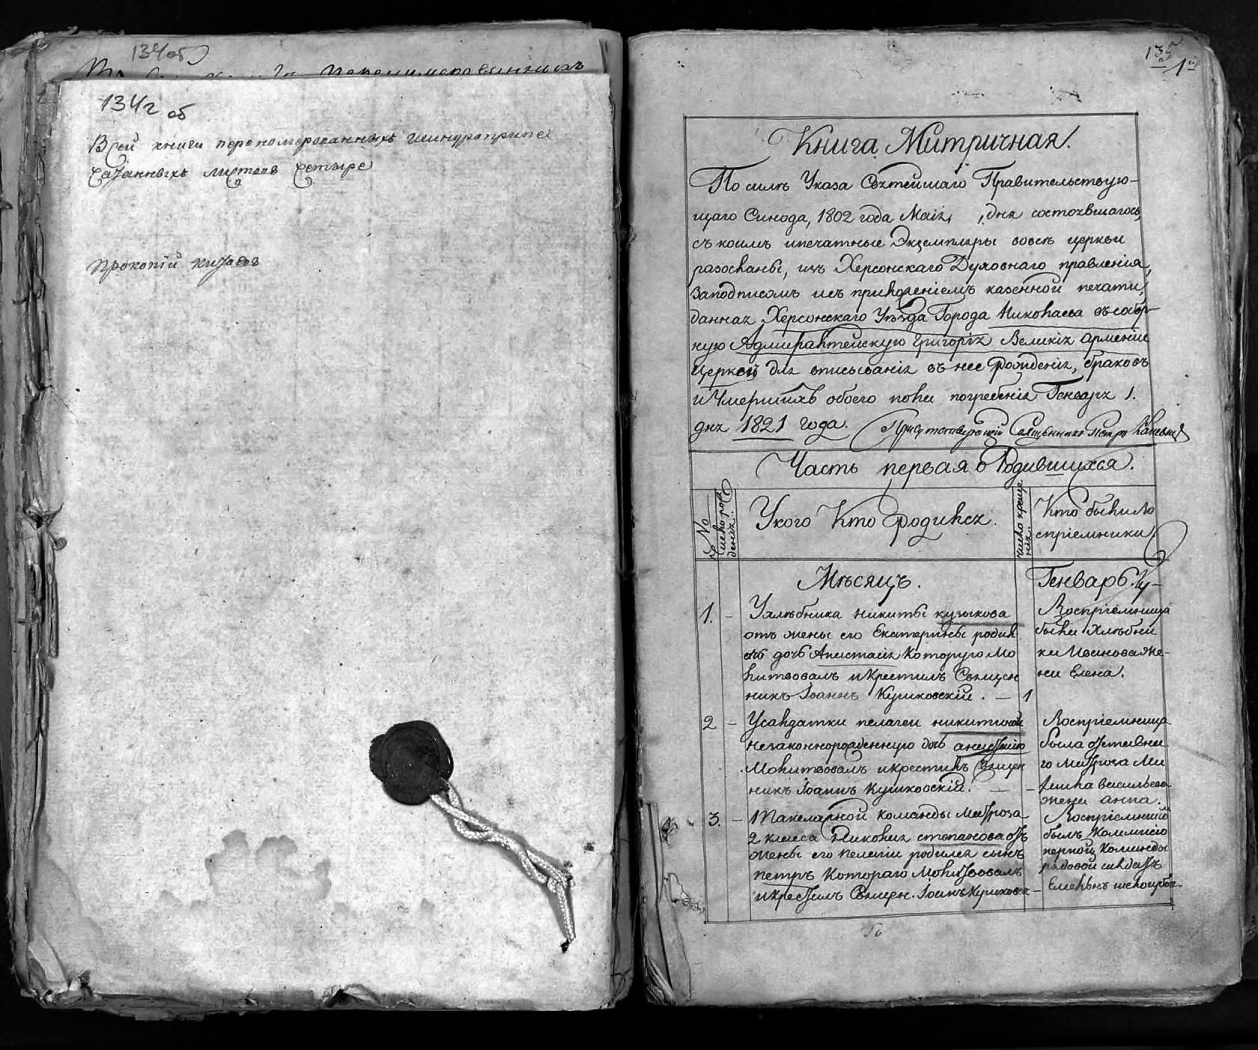 134об
134г об
Всей книги перенумерованныхъ шнуроприпе
чатанныхъ листовъ четыре
Прокопій
135
1
Книга Митричная.
По силѣ Указа Святейшаго Правительствую-
щаго Синода, 1802 года Маія, дня состоявшагося,
съ коимъ и печатные Экземпляры во всѣ церкви
разосланы, изъ Херсонскаго Духовнаго правленія,
Заподписомъ и съ приложеніемъ казенной печати,
данная Херсонскаго Уѣзда Города Николаева въ собор-
ную Адмиралтейскую Григорія Великія Арменіи
Церковь для вписыванія въ нее Рожденія, браковъ
и Умершихъ обоего пола погребенія Генваря 1.
дня 1821 года. Священникъ Петръ
Часть первая о Родившихся.
№
число рож
денія.
Укого Кто родился.
число креще
нія.
Кто были Во
спріемники.
Мѣсяцъ. Генварь.
1. - Ухлѣбника никиты кузыкова
отъ жены его Екатерины родил
съ дочь Анастасія Которую Мо
литвовалъ и Крестилъ Священ
никъ Іоаннъ Кушковскій. - 1
Воспріемница
были Хлѣбни
ки Ивинова же-
ни Елена.
2 - Усолдатки пелагеи никитиной
незаконнорожденную дочь анастасію
Молитвовалъ и крестилъ Священ
никъ Іоаннъ Кушковскій. -
Воспріемница
была отставна
го Матроза Ми
хаила васильева
жена анна.
3. - Шкапеларной Команды Матроза
2 класа Яковия степанова отъ
жены его пелагіи родился сынъ
петръ Котораго Молитвовалъ
и крестилъ Священ. Іоанъ Кушковск -
Воспріемникъ
былъ
первой Команды
рядовой солдатъ